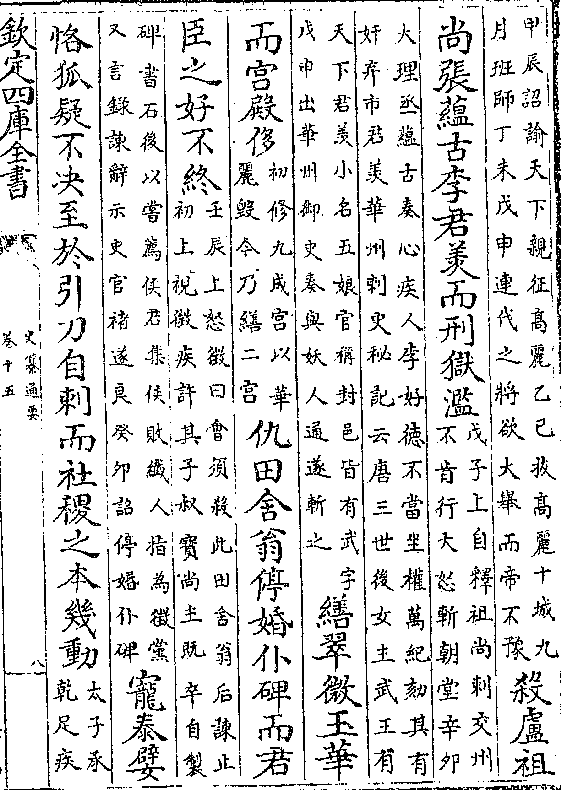 甲辰詔諭天下親征髙麗乙巳拔髙麗十城九
月班師丁未戊申連代之將欲大舉而帝不豫
殺盧祖
尚張藴古李君羡而刑獄濫
戊子上自釋祖尚刺交州
不肯行大怒斬朝堂辛卯
大理丞藴古奏心疾人李好德不當坐權萬紀劾其有
奸弃市君羡華州刺史秘記云唐三世後女主武王有
天下君羡小名五娘官稱封邑皆有武字
戊申出華州御史奏與妖人通遂斬之
繕翠微玉華
而宫殿侈
初修九成宫以華
麗毀今乃繕二宫
仇田舍翁停婚仆碑而君
臣之好不終
壬辰上怒徴曰會須殺此田舍翁后諫止
初上視徴疾許其子叔寳尚主既卒自製
碑書石後以嘗薦侯君集侯敗纎人指為徴黨
又言錄諫辭示史官禇遂良癸卯詔停婚仆碑
寵泰嬖
恪狐疑不决至於引刀自刺而社稷之本幾動
太子承
乾足疾
欽定四庫全書
史纂通要
卷十五
八